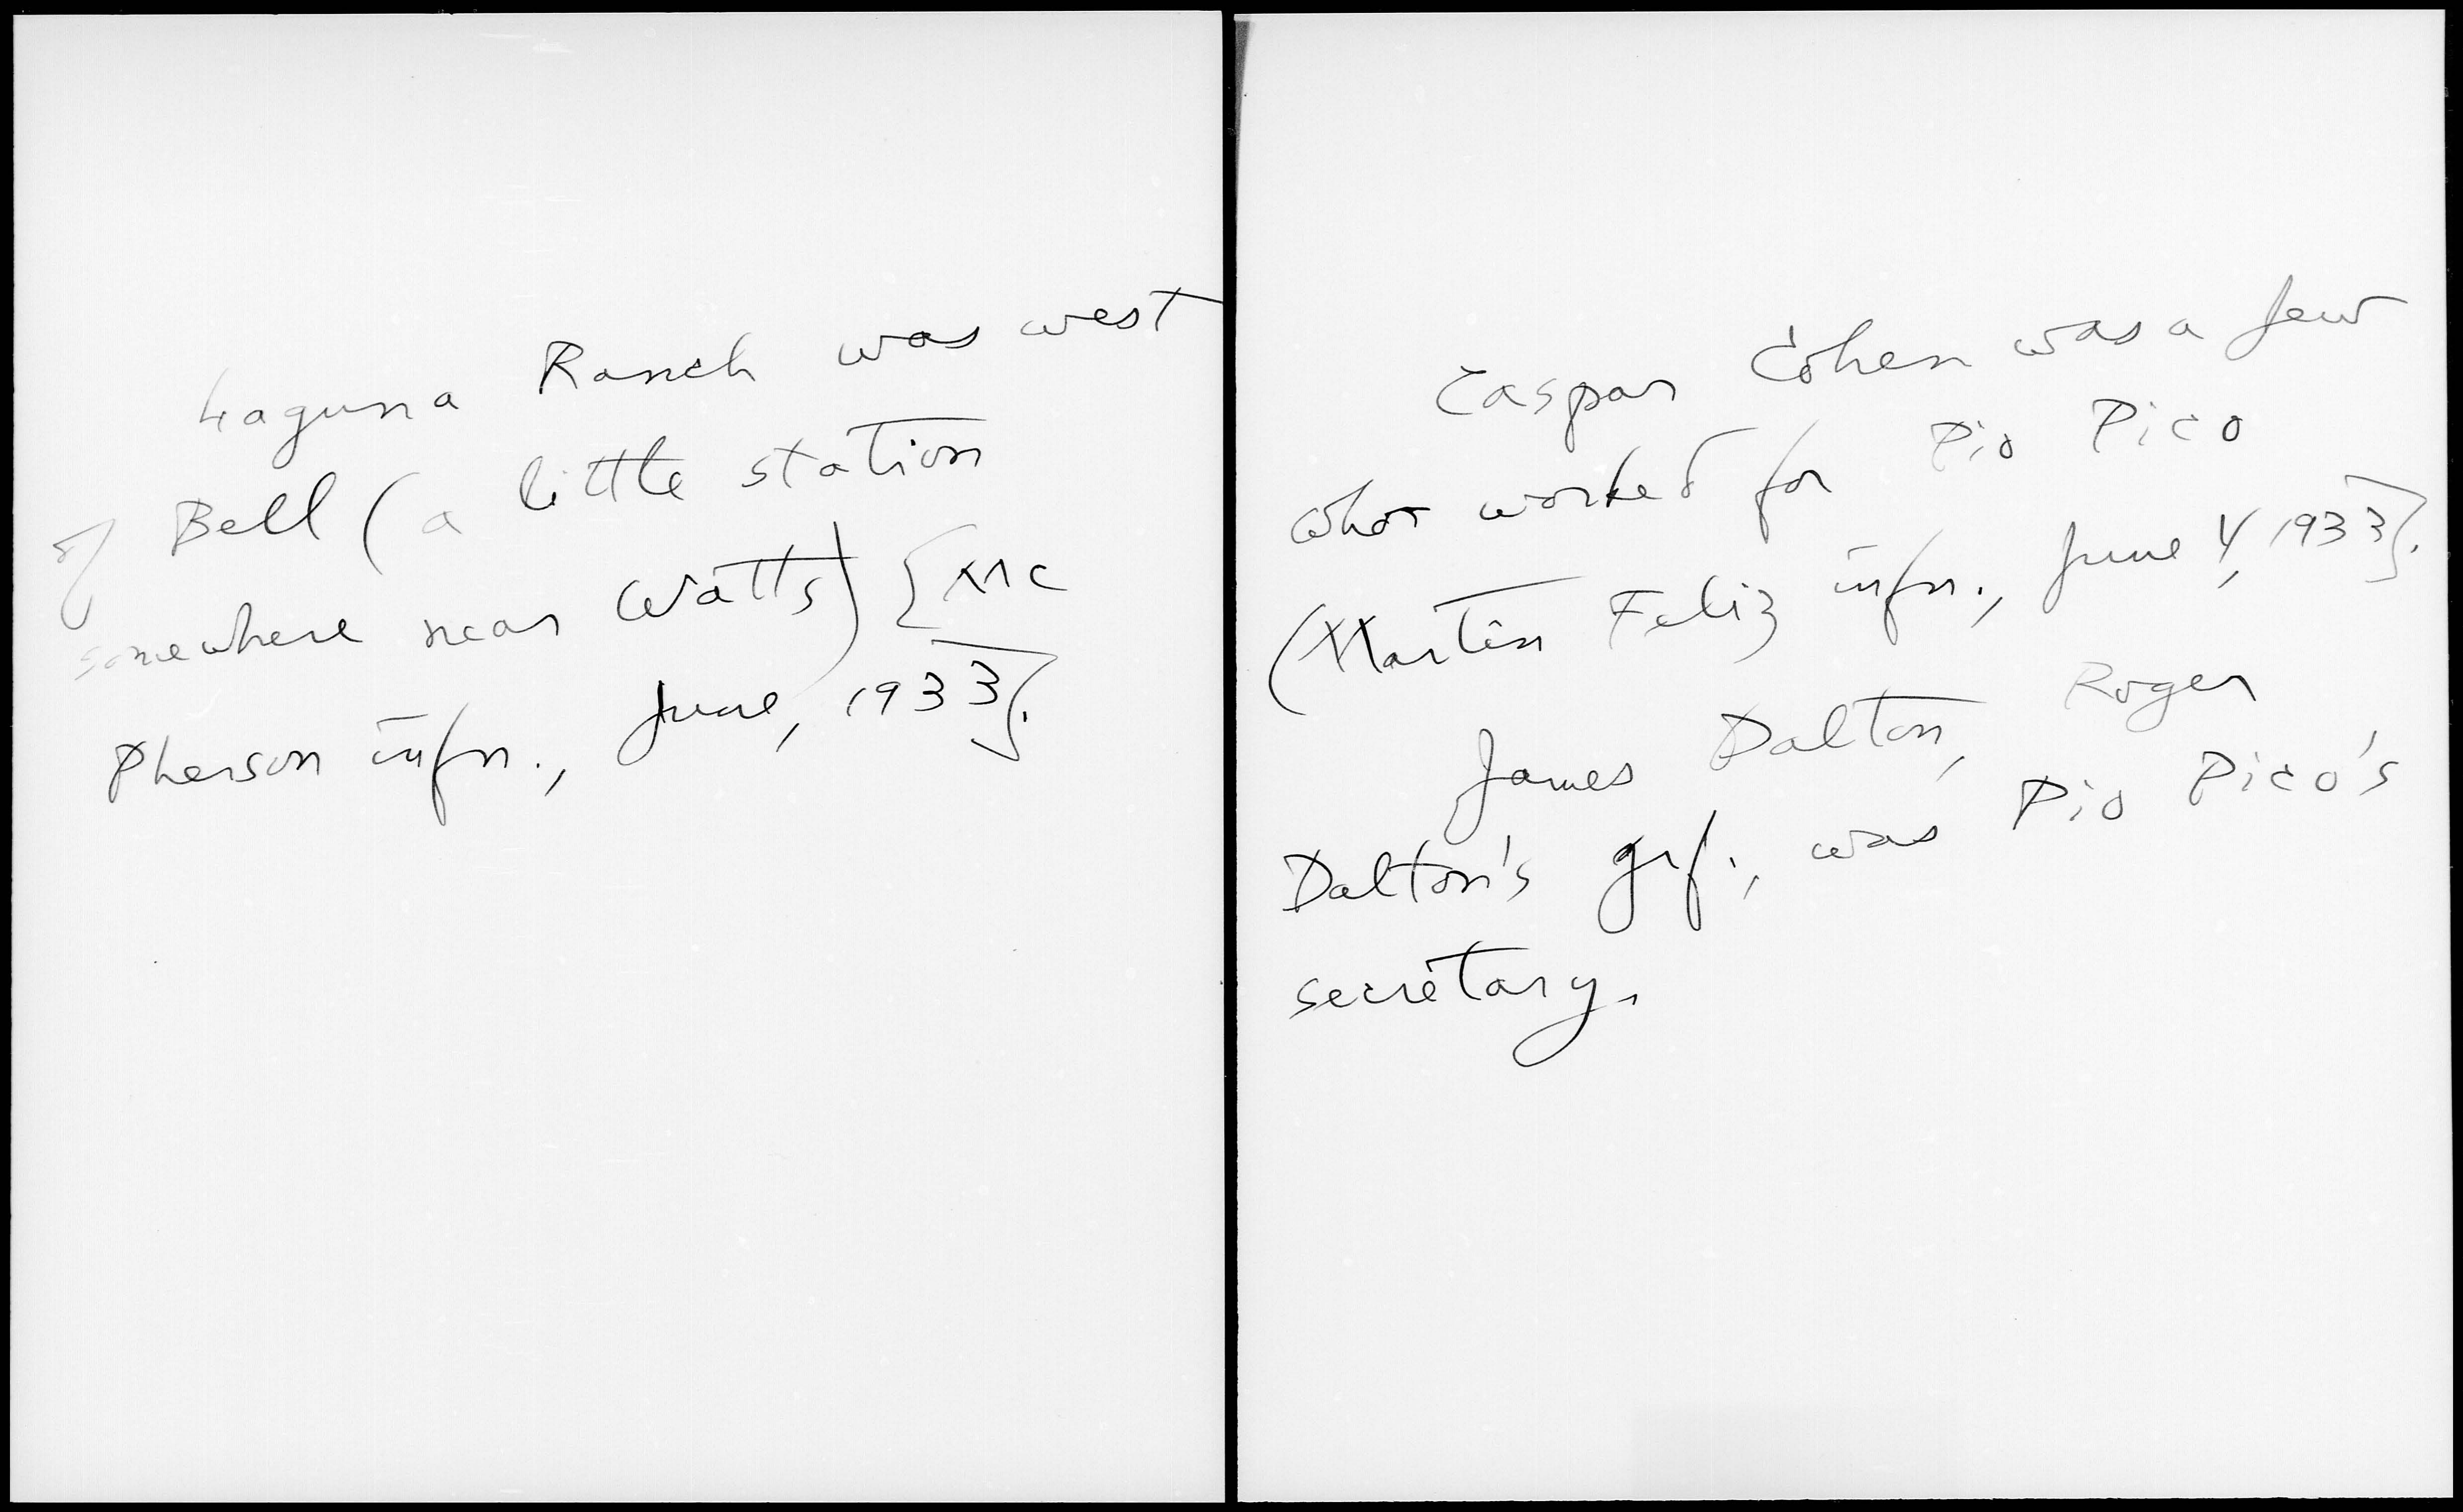 Laguna Ranch was west
of Bell (a little station
somewhere near Watts) [Mc
Pherson infn., June, 1933].
Caspar Cohen was a Jew
who worked for Pio Pico
(Martin Feliz infn., June 4, 1933].
James Dalton, Roger
Dalton's grf., was Pio Pico's
secretary.